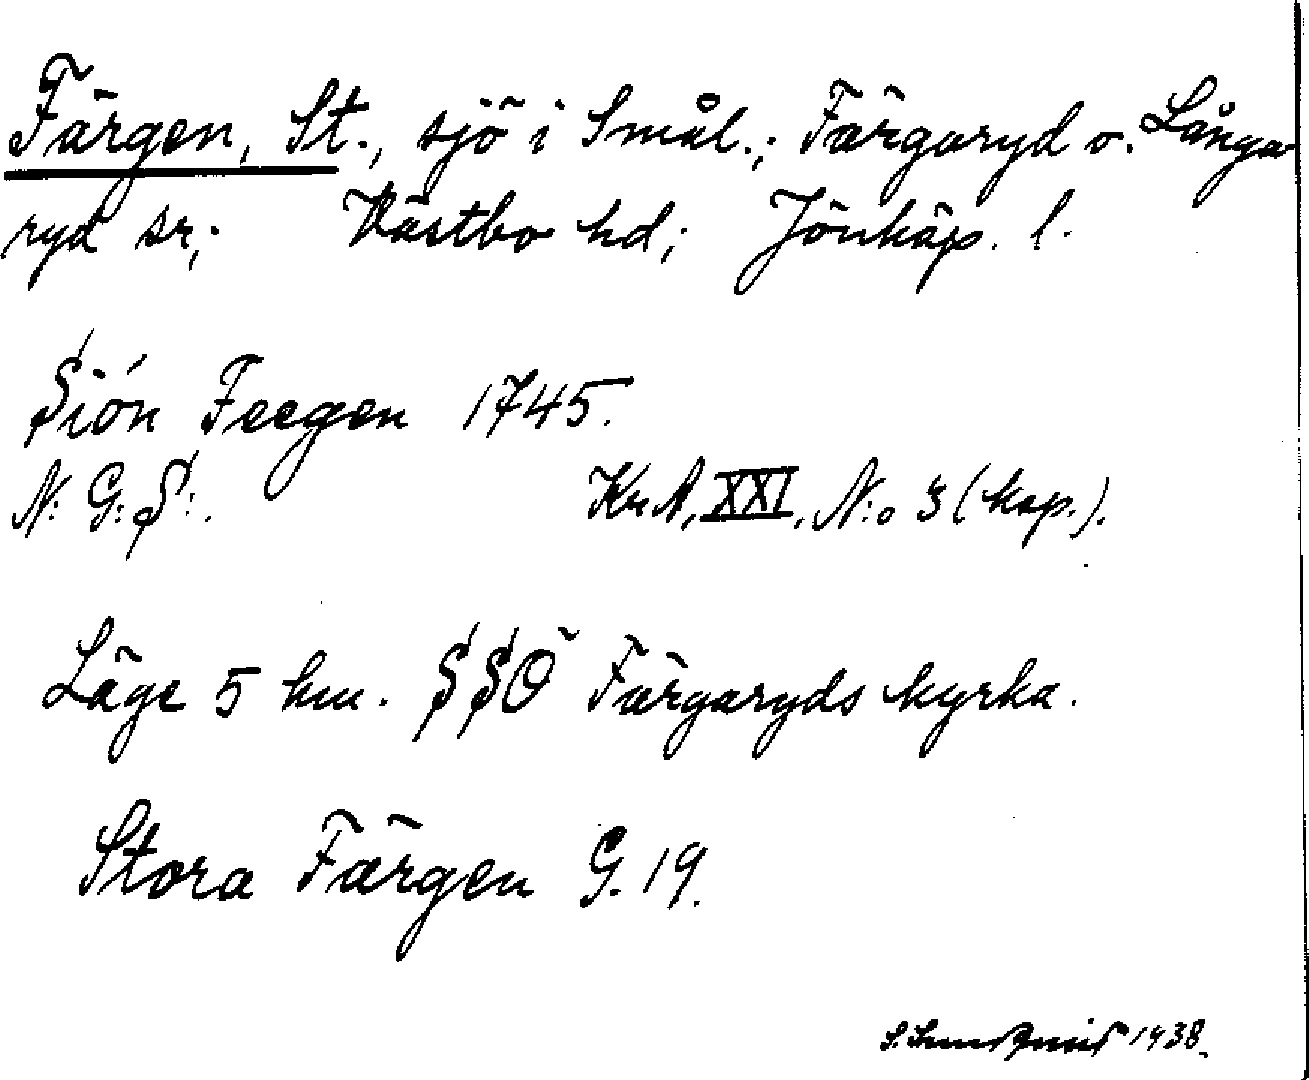 Färgen, St., sjö i Smål.; Färgaryd o. Långa-
ryd sr; Västbo hd; Jönköp. l.
Siön Feegen 1745.
N: G: S:. Kr A, XXI, N:o 3 (kop.).
Läge 5 km. SSÖ Färgaryds kyrka.
Stora Färgen G. 19.
S. 1938.